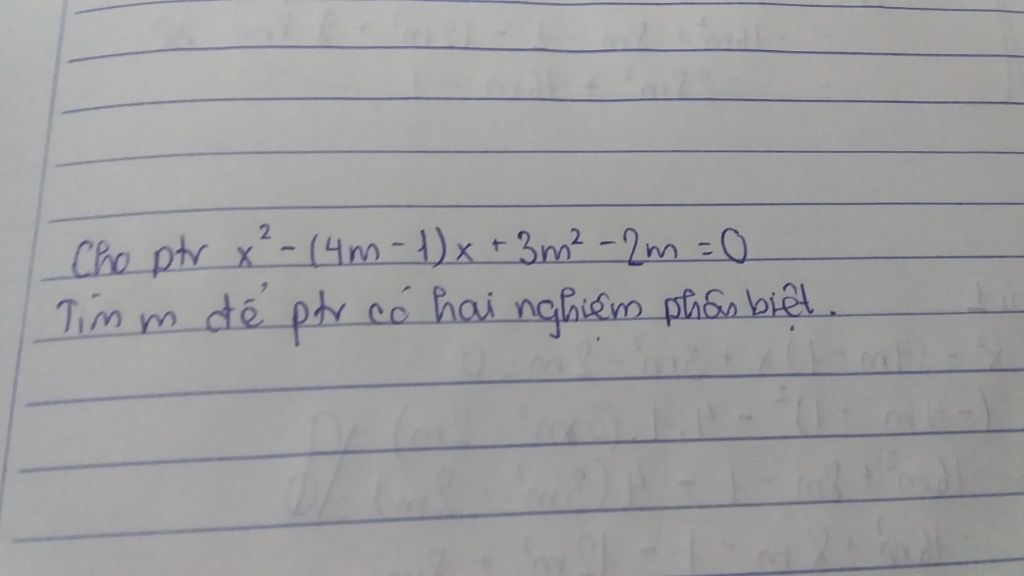 Cho ptr x² - (4m - 1)x + 3m² - 2m = 0
Tìm m để ptr có hai nghiệm phân biệt.